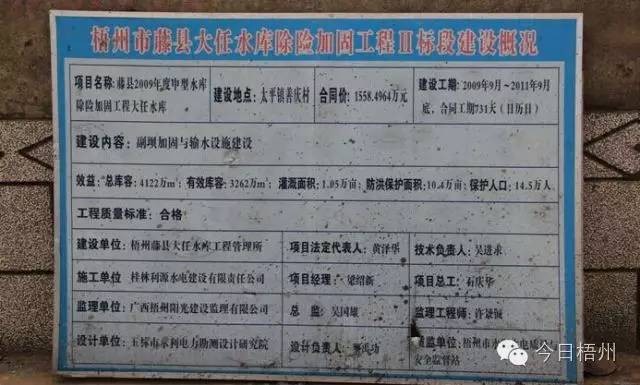 梧州市藤县大任水库除险加固工程Ⅱ标段建设概况
项目名称：藤县2009年度中型水库
除险加固工程大任水库
建设地点：太平镇善庆村
合同价：1558.4964万元
建设工期：2009年9月～2011年9月
底，合同工期731天（日历日）
建设内容：副坝加固与输水设施建设
效益：“总库容：4122万m³；有效库容：3262万m³；灌溉面积：1.05万亩；防洪保护面积：10.4万亩；保护人口：14.5万人
工程质量标准：合格
建设单位：梧州藤县大任水库工程管理所
项目法定代表人：黄泽华
技术负责人：吴进求
施工单位：桂林利源水电建设有限责任公司
项目经理：梁绍新
项目总工：石庆华
监理单位：广西梧州阳光建设监理有限公司
总监：吴国雄
监理工程师：许景颁
设计单位：玉林市水利电力勘测设计研究院
设计负责人：
质监单位：梧州市水
安全监督站
今日梧州